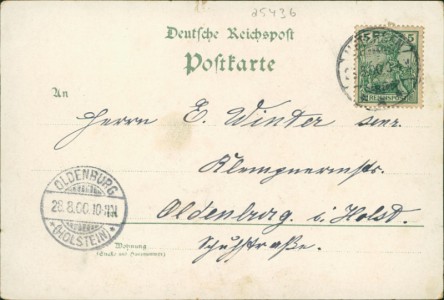 25436
Deutsche Reichspost
Postkarte
An
Herrn E. Winter senr.
Klempnermstr.
Oldenburg i. Holst.
Schuhstraße.
Wohnung
(Straße und Hausnummer)
OLDENBURG
28.8.00.10-11N
*(HOLSTEIN)*
5
REICHSPOST